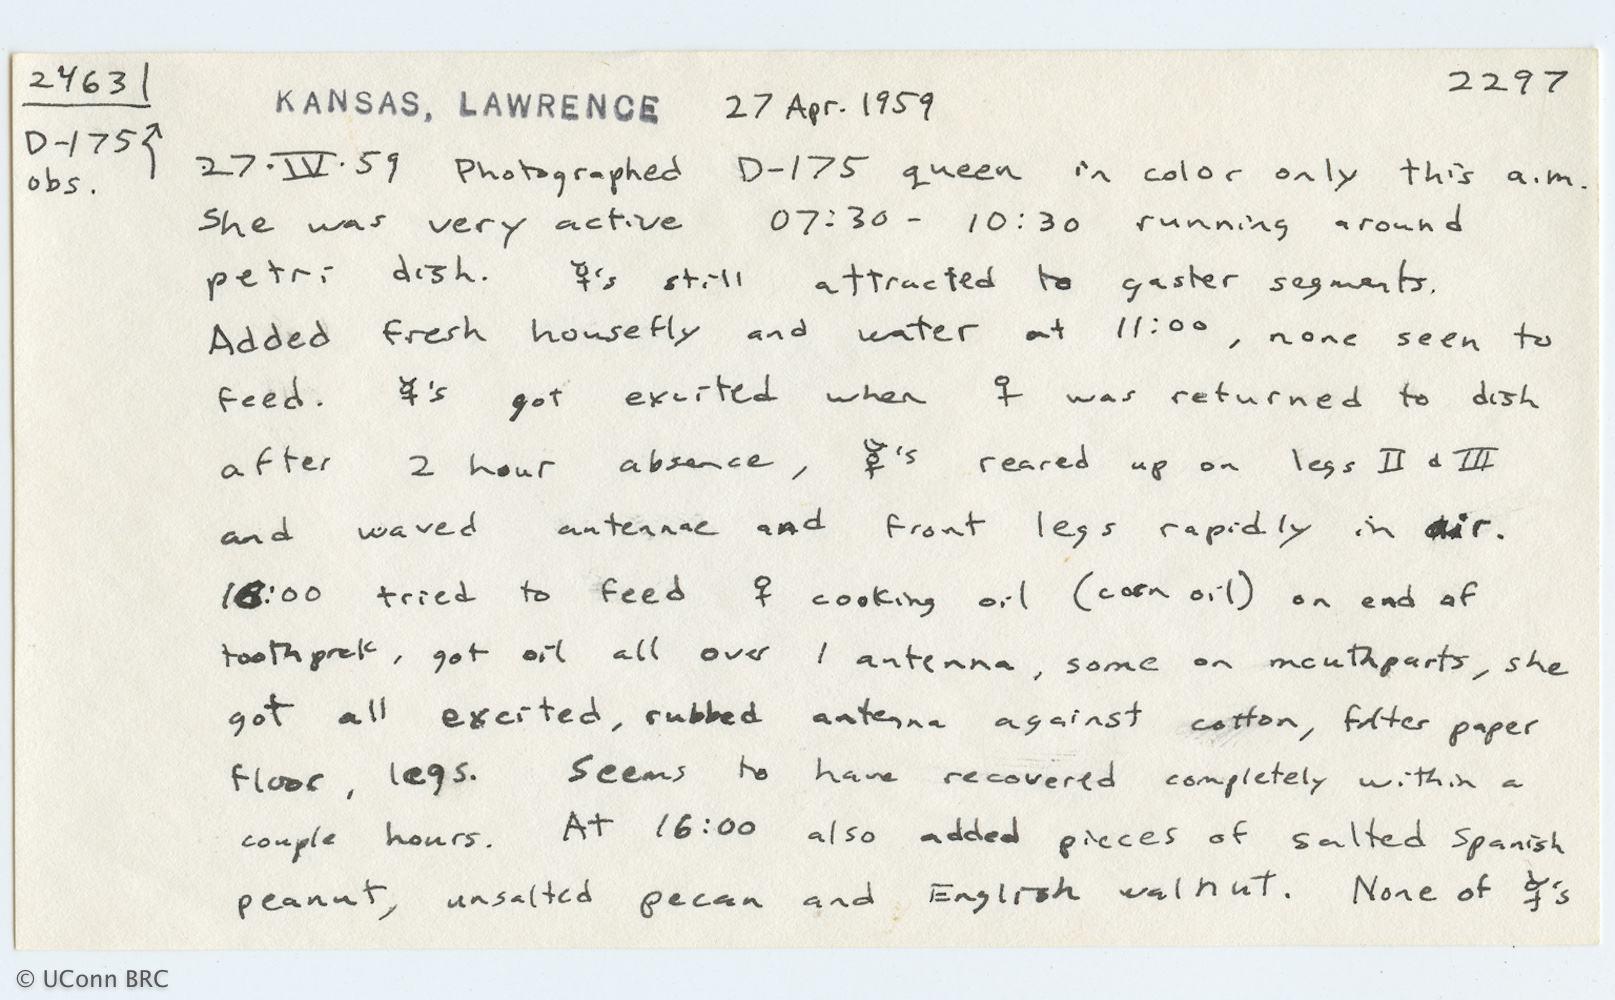 24631
KANSAS, LAWRENCE 27 Apr. 1959
2297
D-175
obs.
27·IV·59 Photographed D-175 queen in color only this a.m.
She was very active 07:30 - 10:30 running around
petri dish. ☿'s still attracted to gaster segments.
Added fresh housefly and water at 11:00, none seen to
feed. ☿'s got excited when ♀ was returned to dish
after 2 hour absence, ☿'s reared up on legs II & III
and waved antennae and front legs rapidly in air.
16:00 tried to feed ♀ cooking oil (corn oil) on end of
toothpick, got oil all over 1 antenna, some on mouthparts, she
got all excited, rubbed antenna against cotton, filter paper
floor, legs. Seems to have recovered completely within a
couple hours. At 16:00 also added pieces of salted Spanish
peanut, unsalted pecan and English walnut. None of ☿'s
© UConn BRC